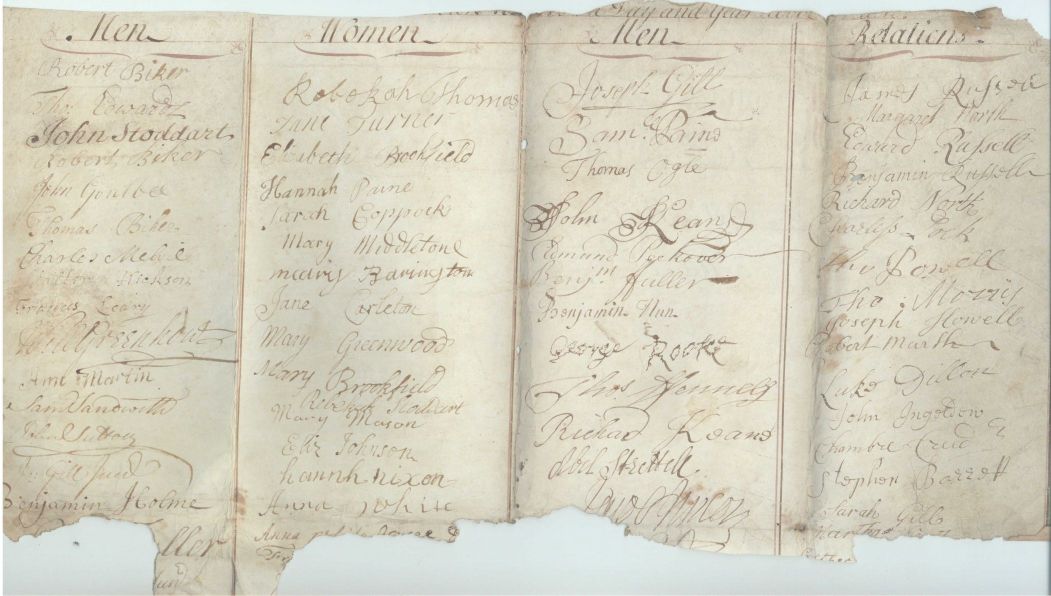 Day and Year
Men
Robert Biker
Tho Edwards
John Stoddart
Robert Biker
John Goulbee
Thomas Biker
Charles
Hickson
Frances Leary
Will Greenhow
Ann Martin
Sam Sandwith
John Sutton
Gill Jun
Benjamin Holme
ller
Women
Rebekah Thomas
Jane Turner
Elizabeth Brookfield
Hannah Paine
Sarah Coppock
Mary Middleton
Barington
Jane Carleton
Mary Greenwood
Mary Brookfield
Rebecca Stoddart
Mary Mason
Eliz Johnson
hannh nixon
Anna White
Anna
Men
Joseph Gill
Saml Paine
Thomas Ogle
John Keand
Edmund Peckover
Benjm Fuller
Benjamin Nun
George Rooke
Thos Fennell
Richard Keand
Abel Strettell
Relations
James Russell
Margaret North
Edward Russell
Benjamin Russell
Richard North
Charless Cock
Tho Powell
Tho Morris
Joseph Howell
Robert
Luke Dillon
John Ingelden
Chambre
Stephen Barrett
Sarah Gill